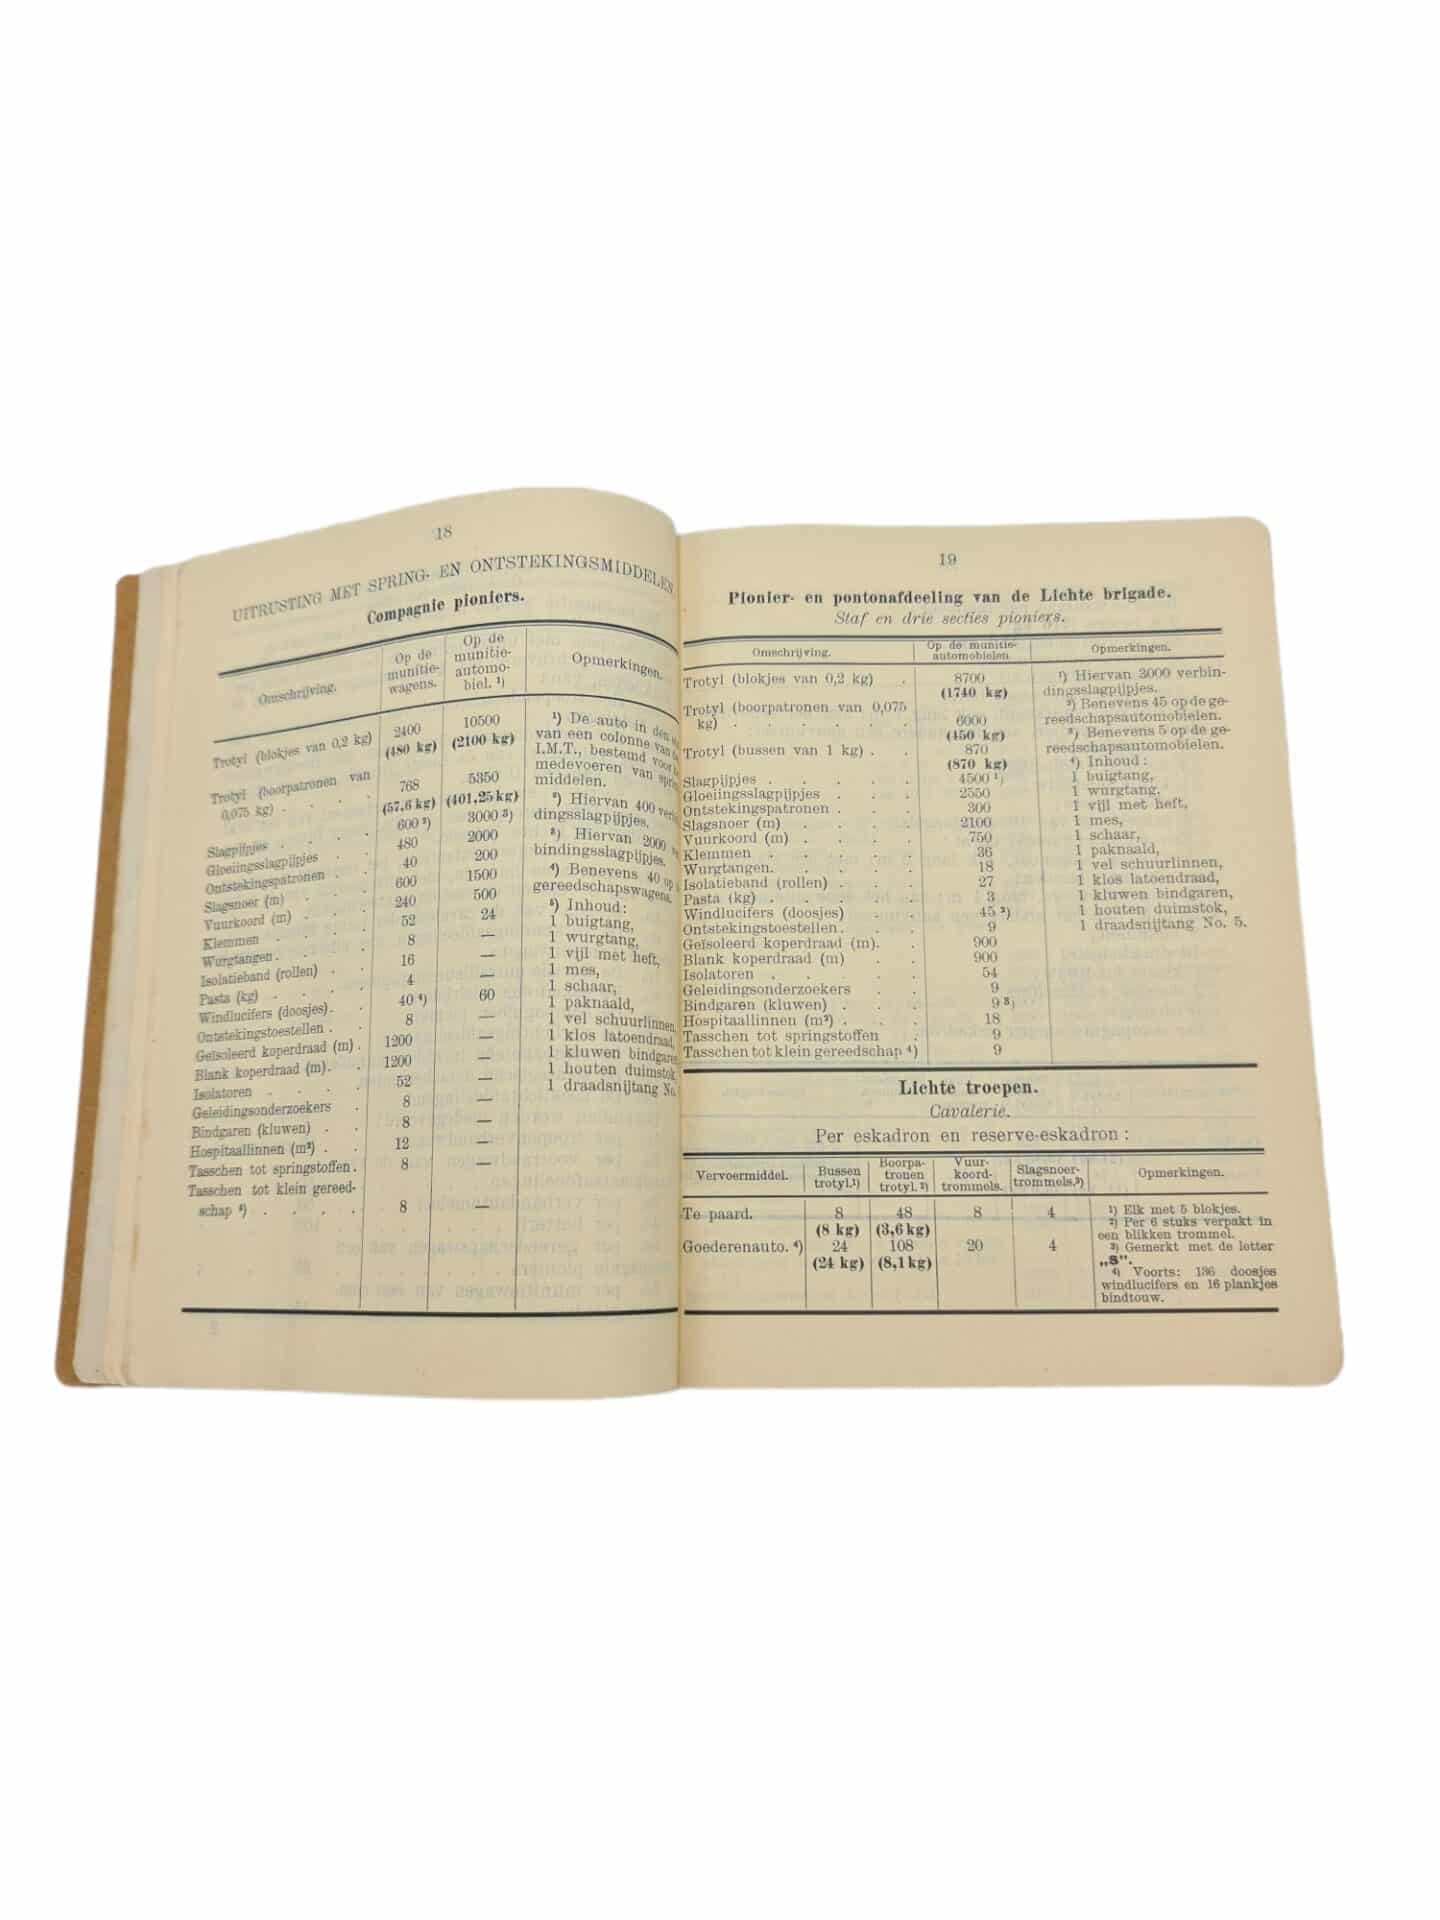 18
UITRUSTING MET SPRING- EN ONTSTEKINGSMIDDELEN
Compagnie pioniers.
Omschrijving. | Op de munitie-wagens. | Op de munitie-automo-biel. ¹) | Opmerkingen.
Trotyl (blokjes van 0,2 kg) | 2400 | 10500
(480 kg) | (2100 kg)
Trotyl (boorpatronen van
0,075 kg) . . . . | 768 | 5350
(57,6 kg) | (401,25 kg)
Slagpijpjes . . . . | 600 ²) | 3000 ³)
Gloeiingsslagpijpjes . . | 480 | 2000
Ontstekingspatronen . | 40 | 200
Slagsnoer (m) . . . | 600 | 1500
Vuurkoord (m) . . . | 240 | 500
Klemmen . . . . | 52 | 24
Wurgtangen. . . . | 8 | —
Isolatieband (rollen) . . | 16 | —
Pasta (kg) . . . . | 4 | —
Windlucifers (doosjes). . | 40 ⁴) | 60
Ontstekingstoestellen . . | 8 | —
Geïsoleerd koperdraad (m) . | 1200 | —
Blank koperdraad (m). . | 1200 | —
Isolatoren . . . . | 52 | —
Geleidingsonderzoekers . | 8 | —
Bindgaren (kluwen) . . | 8 | —
Hospitaallinnen (m²) . . | 12 | —
Tasschen tot springstoffen . | 8 | —
Tasschen tot klein gereed-
schap ⁵) . . . . | 8 | —
¹) De auto in den
van een colonne van
I.M.T., bestemd voor
medevoeren van
middelen.
²) Hiervan 400
dingsslagpijpjes.
³) Hiervan 2000
bindingsslagpijpjes.
⁴) Benevens 40 op
gereedschapswagens.
⁵) Inhoud:
1 buigtang,
1 wurgtang,
1 vijl met heft,
1 mes,
1 schaar,
1 paknaald,
1 vel schuurlinnen,
1 klos latoendraad,
1 kluwen bindgaren
1 houten duimstok
1 draadsnijtang No.
19
Pionier- en pontonafdeeling van de Lichte brigade.
Staf en drie secties pioniers.
Omschrijving. | Op de munitie-automobielen. | Opmerkingen.
Trotyl (blokjes van 0,2 kg) . | 8700
(1740 kg)
Trotyl (boorpatronen van 0,075
kg) . . . . . . | 6000
(450 kg)
Trotyl (bussen van 1 kg) . . | 870
(870 kg)
Slagpijpjes . . . . . | 4500 ¹)
Gloeiingsslagpijpjes . . . | 2550
Ontstekingspatronen . . . | 300
Slagsnoer (m) . . . . | 2100
Vuurkoord (m) . . . . | 750
Klemmen . . . . . | 36
Wurgtangen. . . . . | 18
Isolatieband (rollen) . . . | 27
Pasta (kg) . . . . . | 3
Windlucifers (doosjes) . . | 45 ²)
Ontstekingstoestellen. . . | 9
Geïsoleerd koperdraad (m). . | 900
Blank koperdraad (m) . . | 900
Isolatoren . . . . . | 54
Geleidingsonderzoekers . . | 9
Bindgaren (kluwen) . . . | 9 ³)
Hospitaallinnen (m²) . . . | 18
Tasschen tot springstoffen . | 9
Tasschen tot klein gereedschap ⁴) | 9
¹) Hiervan 3000 verbin-
dingsslagpijpjes.
²) Benevens 45 op de ge-
reedschapsautomobielen.
³) Benevens 5 op de ge-
reedschapsautomobielen.
⁴) Inhoud:
1 buigtang,
1 wurgtang,
1 vijl met heft,
1 mes,
1 schaar,
1 paknaald,
1 vel schuurlinnen,
1 klos latoendraad,
1 kluwen bindgaren,
1 houten duimstok,
1 draadsnijtang No. 5.
Lichte troepen.
Cavalerie.
Per eskadron en reserve-eskadron :
Vervoermiddel. | Bussen trotyl.¹) | Boorpa-tronen trotyl.²) | Vuur-koord-trommels. | Slagsnoer-trommels.³) | Opmerkingen.
Te paard. | 8 | 48 | 8 | 4
(8 kg) | (3,6 kg)
Goederenauto. ⁴) | 24 | 108 | 20 | 4
(24 kg) | (8,1 kg)
¹) Elk met 5 blokjes.
²) Per 6 stuks verpakt in
een blikken trommel.
³) Gemerkt met de letter
„S”.
⁴) Voorts: 136 doosjes
windlucifers en 16 plankjes
bindtouw.